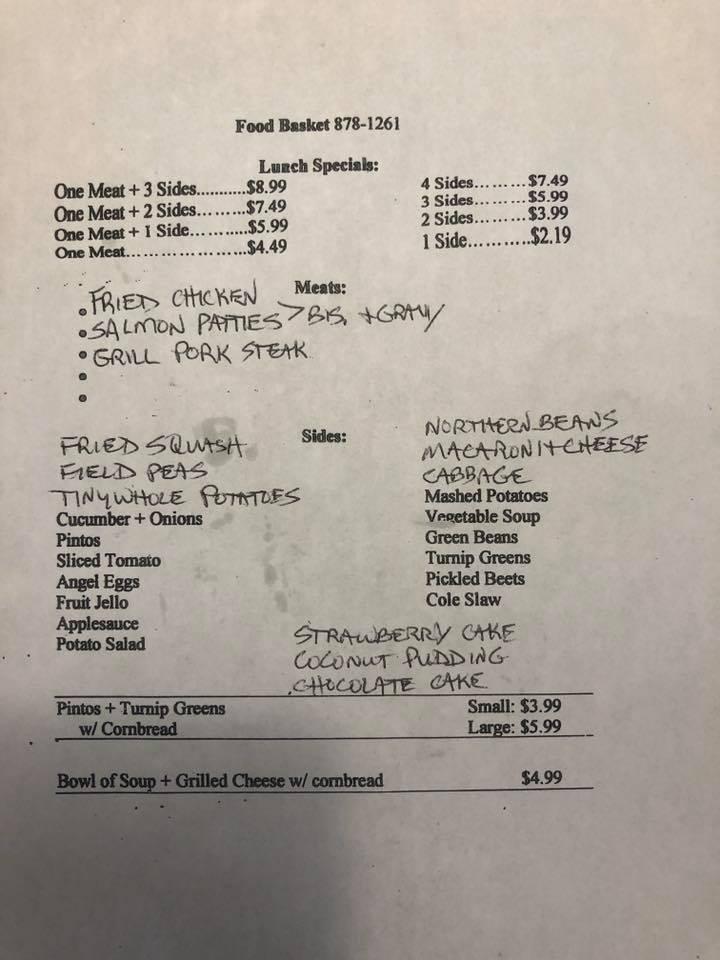 Food Basket 878-1261
Lunch Specials:
One Meat + 3 Sides...........$8.99
One Meat + 2 Sides..........$7.49
One Meat + 1 Side.............$5.99
One Meat........................$4.49
4 Sides.........$7.49
3 Sides.........$5.99
2 Sides.........$3.99
1 Side...........$2.19
Meats:
• FRIED CHICKEN
• SALMON PATTIES > BIS. + GRAVY
• GRILL PORK STEAK
•
•
Sides:
FRIED SQUASH
FIELD PEAS
TINY WHOLE POTATOES
Cucumber + Onions
Pintos
Sliced Tomato
Angel Eggs
Fruit Jello
Applesauce
Potato Salad
NORTHERN BEANS
MACARONI + CHEESE
CABBAGE
Mashed Potatoes
Vegetable Soup
Green Beans
Turnip Greens
Pickled Beets
Cole Slaw
STRAWBERRY CAKE
COCONUT PUDDING
CHOCOLATE CAKE
Pintos + Turnip Greens Small: $3.99
w/ Cornbread Large: $5.99
Bowl of Soup + Grilled Cheese w/ cornbread $4.99